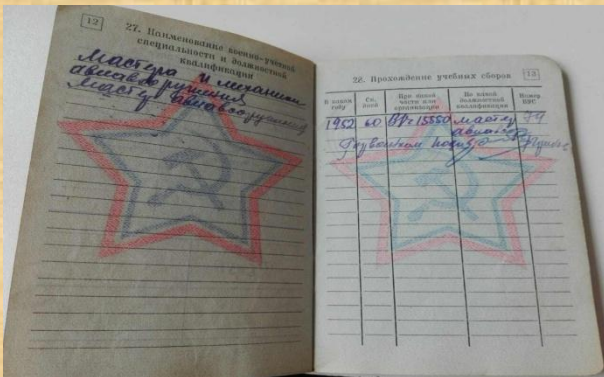 12
27. Наименование военно-учетной
специальности и должностной
квалификации
Мастера и механики
авиавооружения
Мастер авиавооружения
28. Прохождение учебных сборов 13
В каком году
Ск. дней
При какой части или организации
По какой должностной квалификации
Номер ВУС
1952 60 В/ч 15550 мастер 79
авиа